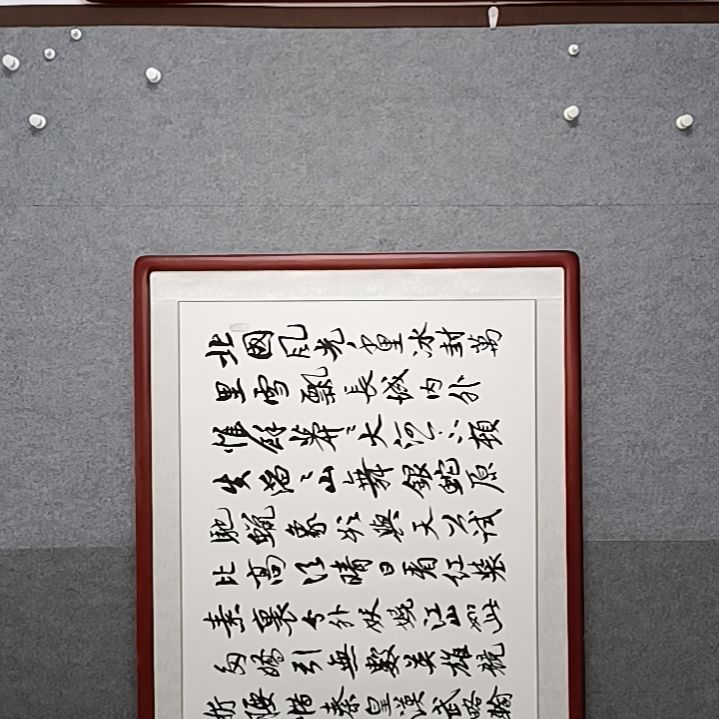 北國风光千里冰封萬
里雪飄長城内外
惟餘莽々大河上下頓
失滔々山舞銀蛇原
馳蠟象欲與天公試
比高須晴日看紅裝
素裹分外妖嬈江山如此
多嬌引無數英雄競
折腰惜秦皇漢武略輸